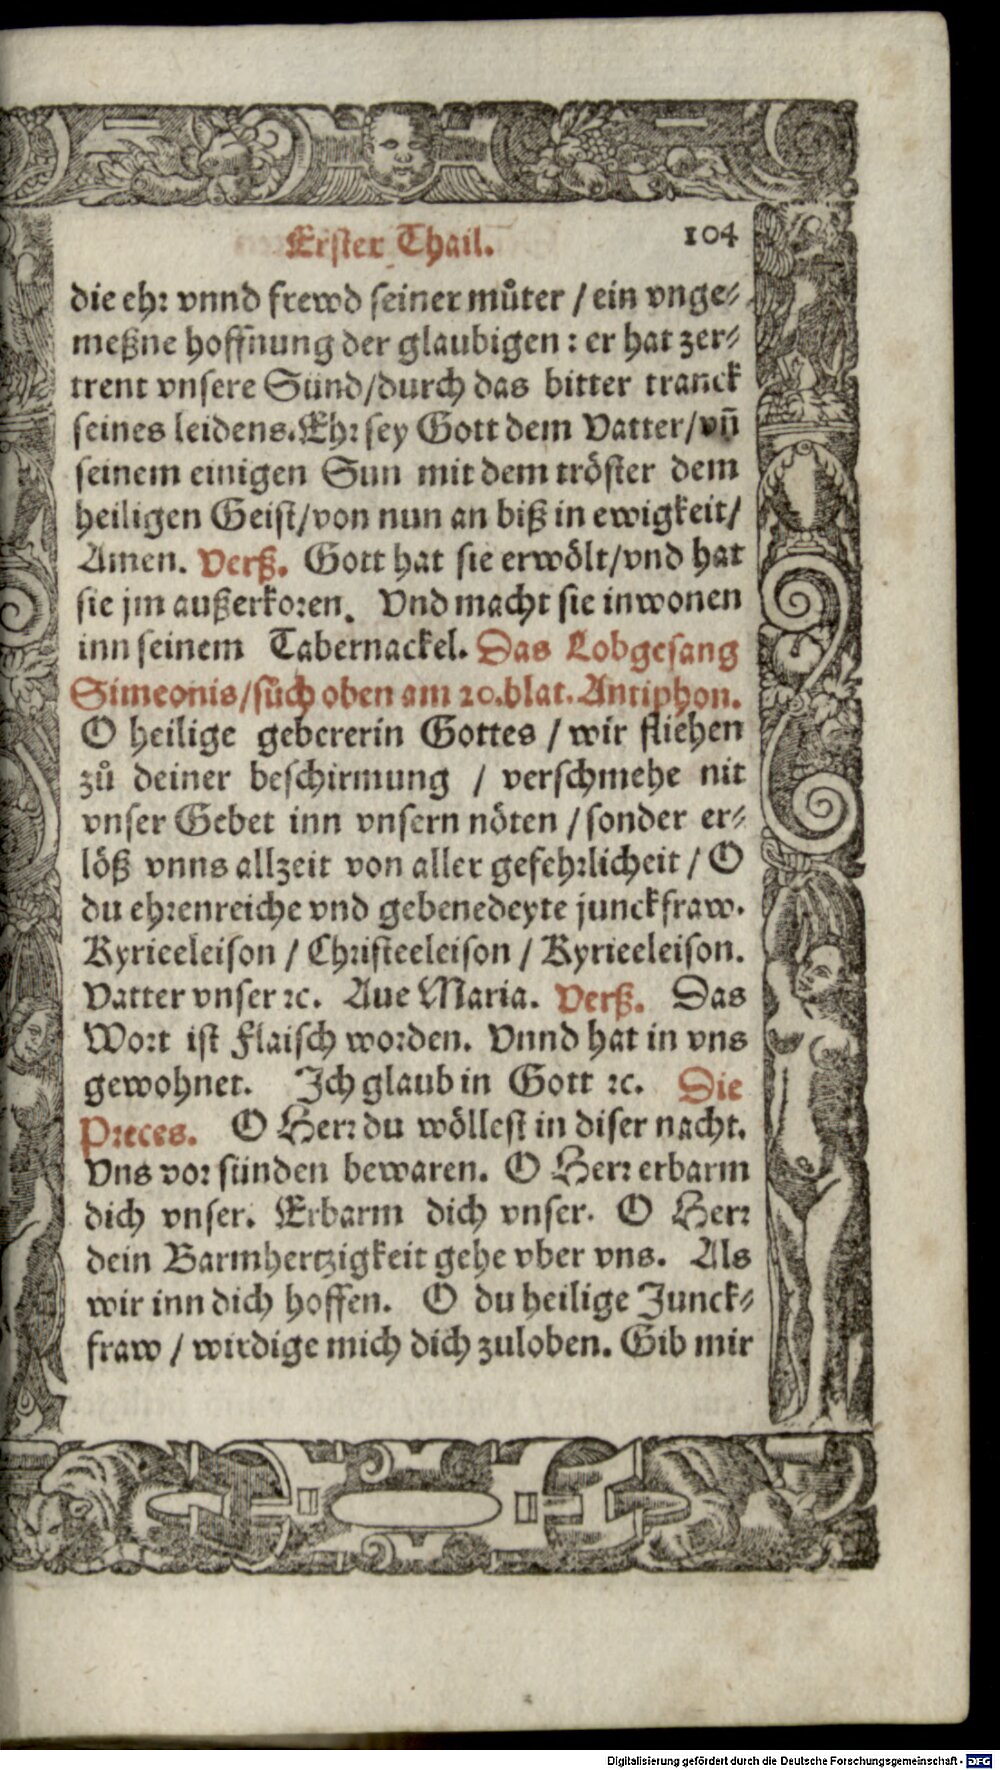 Erster Thail. 104
die ehr vnnd frewd seiner můter / ein vnge⸗
meßne hoffnung der glaubigen : er hat zer⸗
trent vnsere Sünd/durch das bitter tranck
seines leidens. Ehr sey Gott dem Vatter/vñ
seinem einigen Sun mit dem tröster dem
heiligen Geist/von nun an biß in ewigkeit/
Amen. Verß. Gott hat sie erwölt/vnd hat
sie jm außerkoren. Vnd macht sie inwonen
inn seinem Tabernackel. Das Lobgesang
Simeonis/sůch oben am 20. blat. Antiphon.
O heilige gebererin Gottes / wir fliehen
zů deiner beschirmung / verschmehe nit
vnser Gebet inn vnsern nöten / sonder er⸗
löß vnns allzeit von aller gefehrlicheit / O
du ehrenreiche vnd gebenedeyte junckfraw.
Kyrieeleison / Christeeleison / Kyrieeleison.
Vatter vnser ꝛc. Aue Maria. Verß. Das
Wort ist Flaisch worden. Vnnd hat in vns
gewohnet. Ich glaub in Gott ꝛc. Die
Preces. O Herr du wöllest in diser nacht.
Vns vor sünden bewaren. O Herr erbarm
dich vnser. Erbarm dich vnser. O Herr
dein Barmhertzigkeit gehe vber vns. Als
wir inn dich hoffen. O du heilige Junck⸗
fraw / wirdige mich dich zuloben. Gib mir
Digitalisierung gefördert durch die Deutsche Forschungsgemeinschaft - DFG